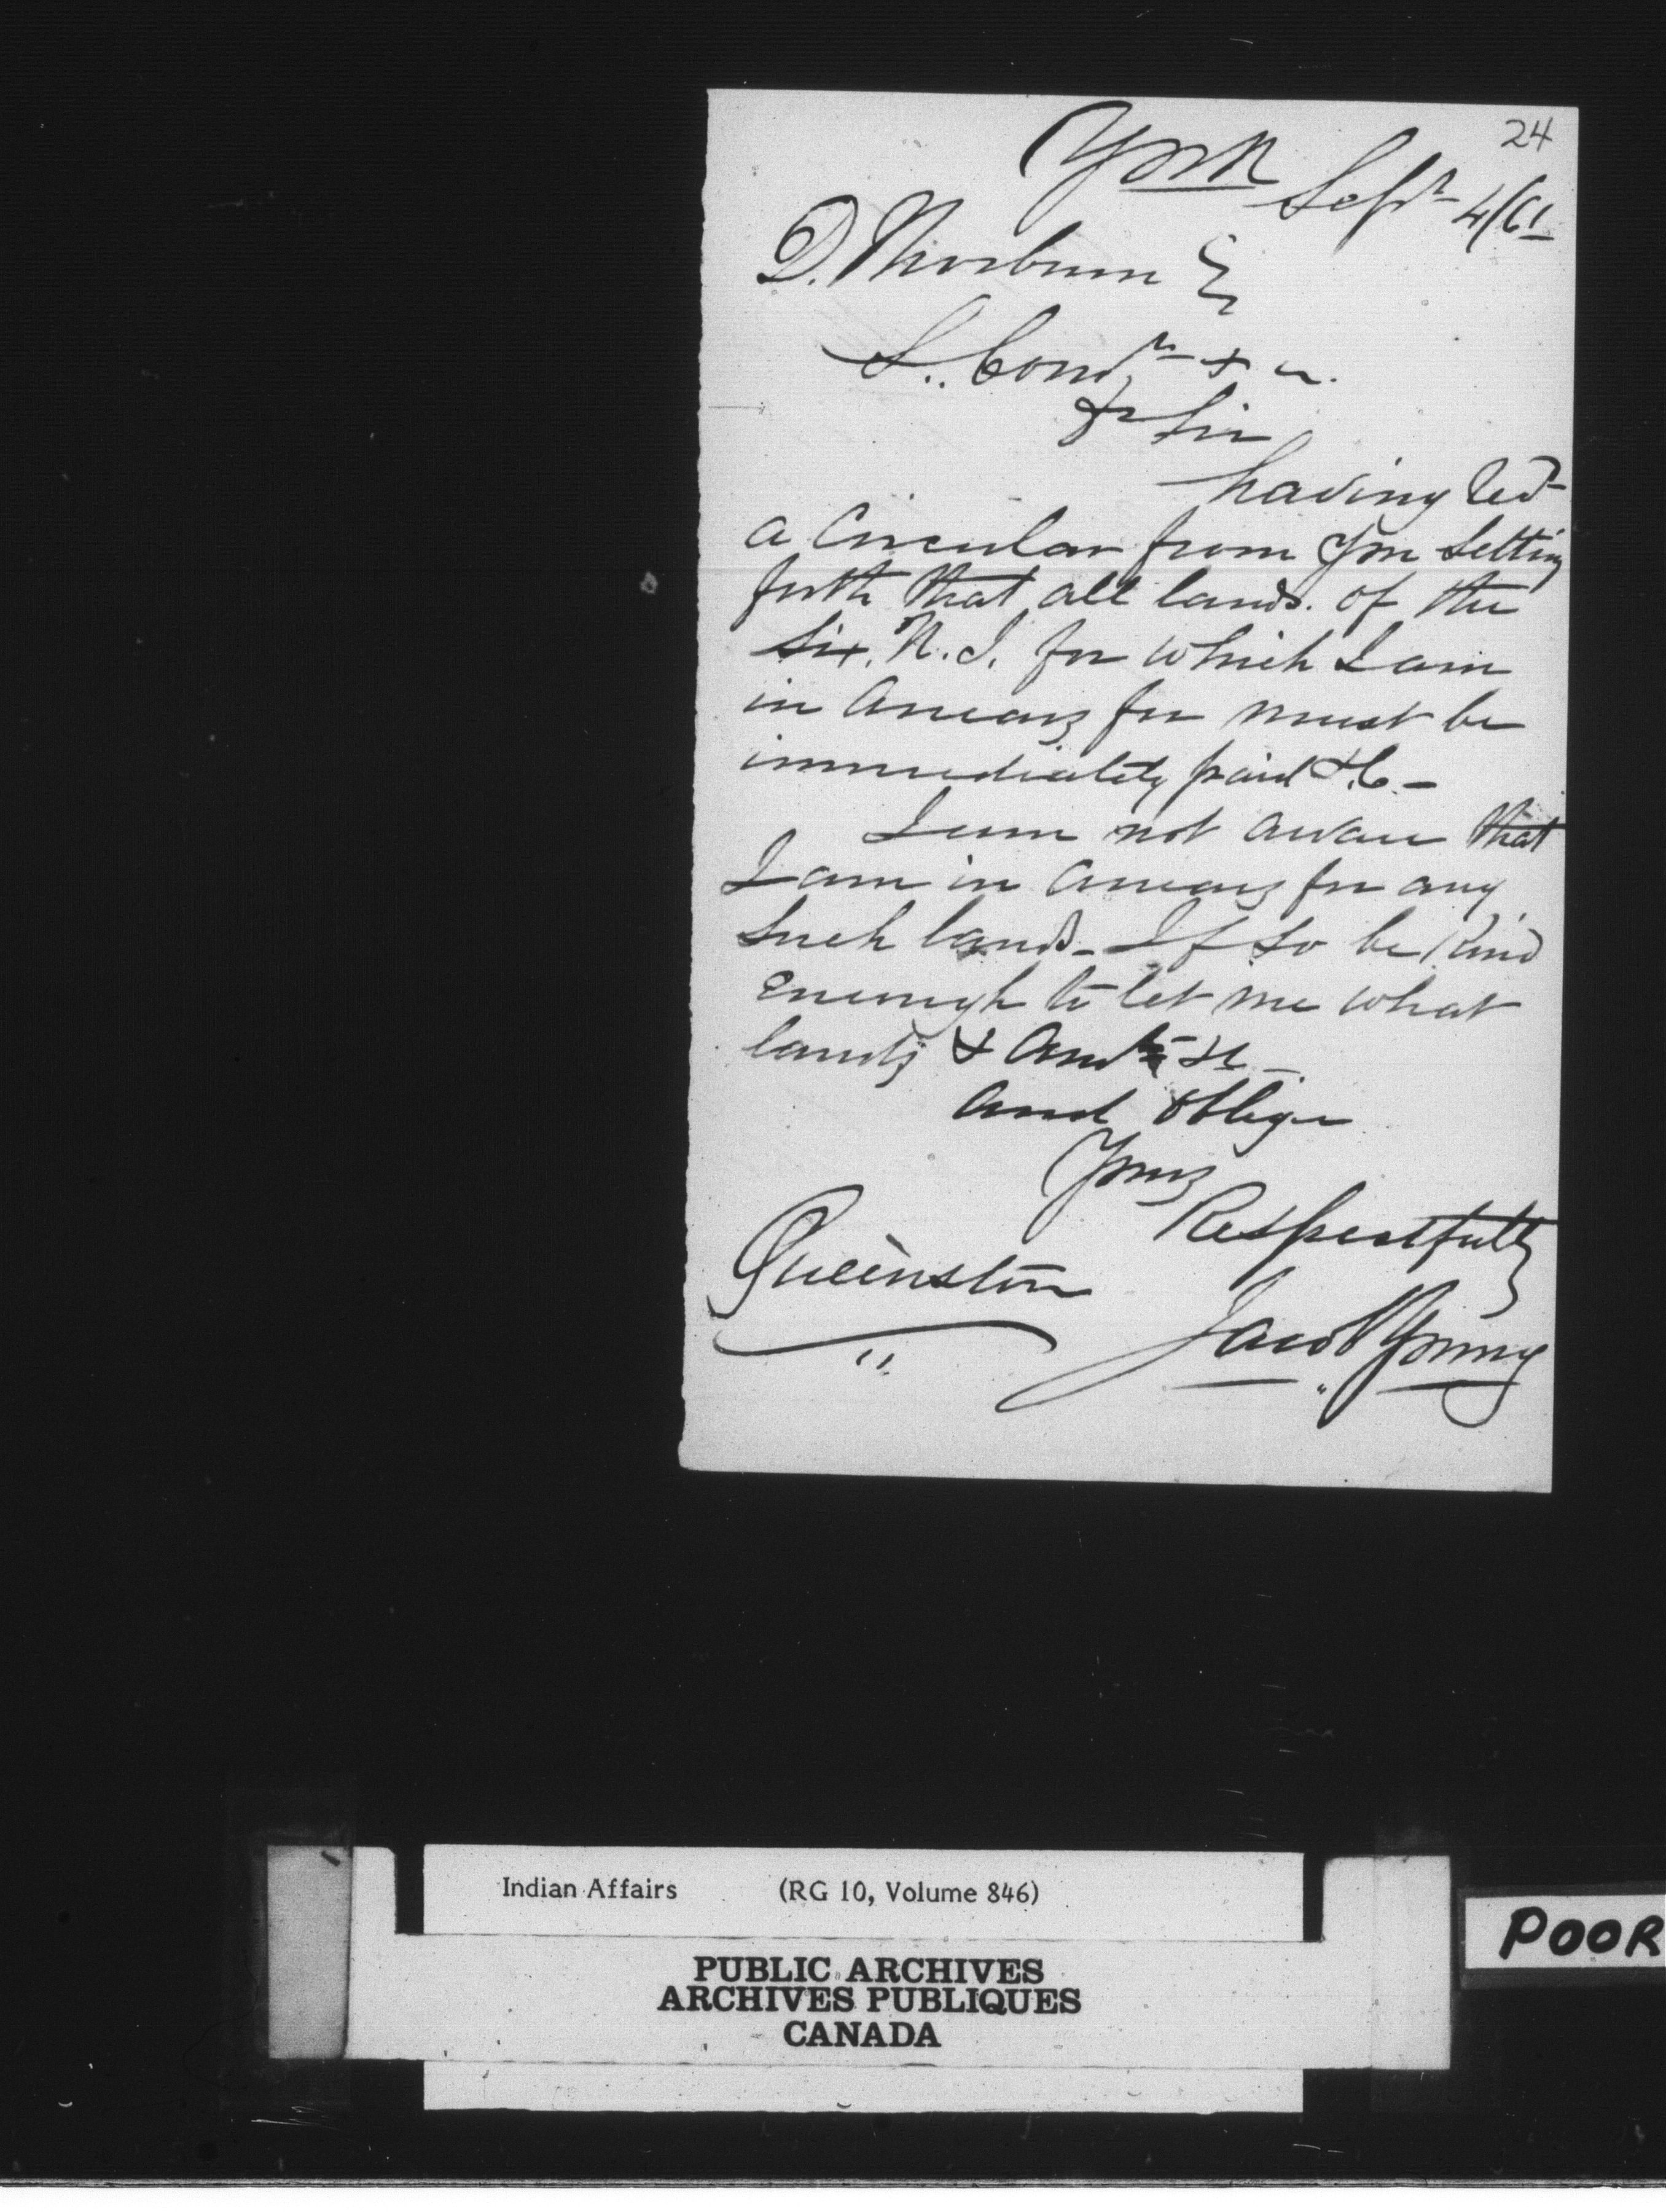 24
York Sept 4/61
D. Thorburn
S. Comr & c.
Dr Sir
having Recd
a Circular from you Setting
forth that all lands. of the
Six. N. I. for which I am
in Arrears for must be
immediately paid &c -
I am not aware that
I am in Arrears for any
Such lands - If so be Kind
Enough to let me what
lands & Amts &c -
And Oblige
Yours
Respectfully
Queenston
Jacob Young
Indian Affairs (RG 10, Volume 846)
PUBLIC ARCHIVES
ARCHIVES PUBLIQUES
CANADA
POOR